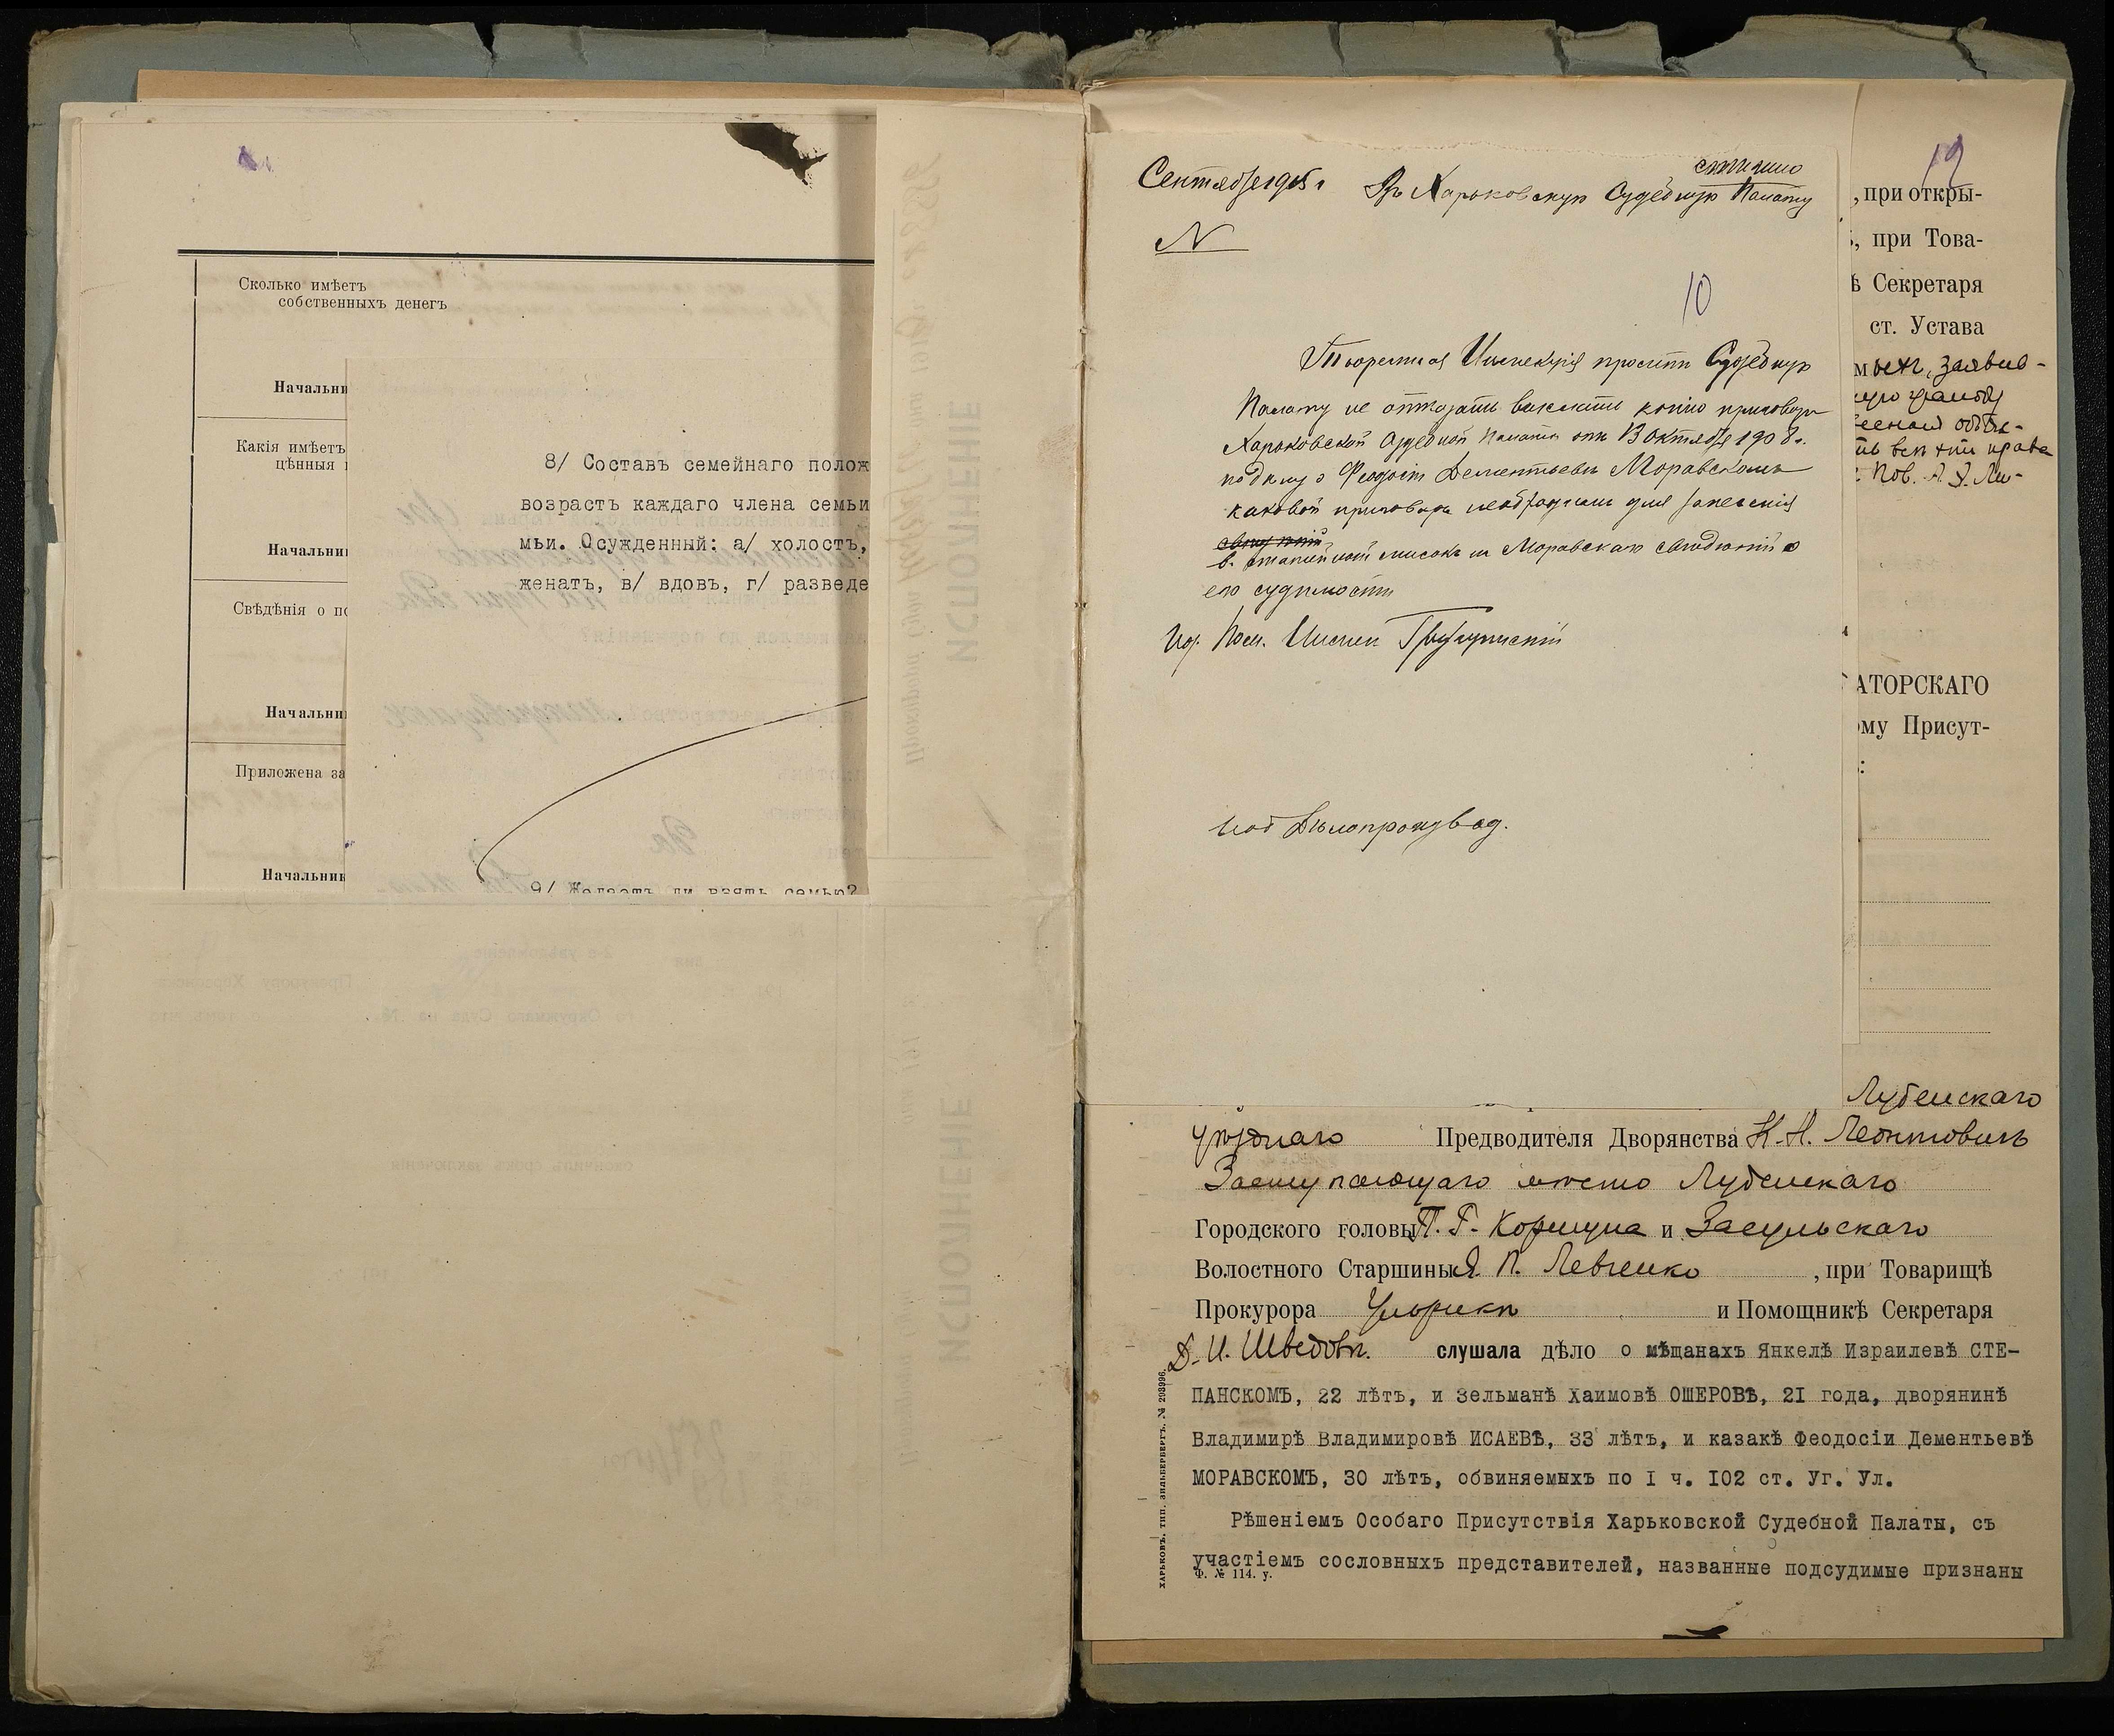 Сколько имѣетъ
собственныхъ денегъ
Начальни
Какія имѣетъ
цѣнныя
Начальни
Свѣдѣнія о по
Начальни
Приложена за
Начальник
8/ Составъ семейнаго полож
возрастъ каждаго члена семьи
мьи. Осужденный: а/ холостъ,
женатъ, в/ вдовъ, г/ разведе
9/ Желаетъ ли взять семью?
спѣшно
Въ Харьковскую Судебную Палату
N
10
Тюремная Инспекція проситъ Судебную
Палату не отказать выслать копію приговора
Харьковской Судебной Палаты отъ 13 Октября 1908 г.
по дѣлу о Феодосіи Дементьевѣ Моравскомъ
каковой приговоръ необходимъ для занесенія
въ статейный списокъ Моравскаго свѣдѣній о
его судимости
Пом. Инспек
Дѣлопроизвод.
19
, при откры-
, при Това-
ѣ Секретаря
ст. Устава
заявив-
права
АТОРСКАГО
ому Присут-
:
Лубенскаго
уѣзднаго Предводителя Дворянства К. Н. Леонтовичъ
Заступающаго мѣсто Лубенскаго
Городского головы П. Г. Коршуна и Засульскаго
Волостного Старшины Я. П. Левченко , при Товарищѣ
Прокурора и Помощникѣ Секретаря
Д. И. Шведовъ. слушала дѣло о мѣщанахъ Янкелѣ Израилевѣ СТЕ-
ПАНСКОМЪ, 22 лѣтъ, и Зельманѣ Хаимовѣ ОШЕРОВѢ, 21 года, дворянинѣ
Владимирѣ Владимировѣ ИСАЕВѢ, 33 лѣтъ, и казакѣ Феодосіи Дементьевѣ
МОРАВСКОМЪ, 30 лѣтъ, обвиняемыхъ по I ч. 102 ст. Уг. Ул.
Рѣшеніемъ Особаго Присутствія Харьковской Судебной Палаты, съ
участіемъ сословныхъ представителей, названные подсудимые признаны
Ф. № 114. у.
ХАРЬКОВЪ, ТИП. ЗИЛЬБЕРБЕРГЪ. № 203996.